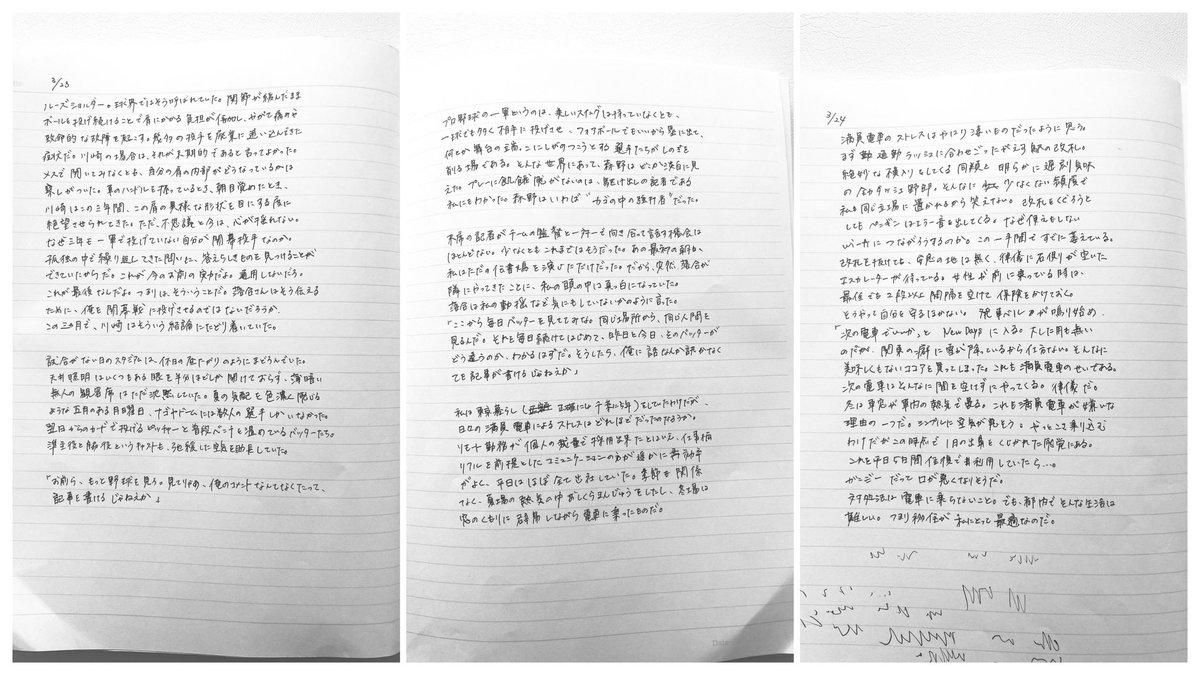 3/23
ルーズショルダー。球界ではそう呼ばれていた。関節が緩んだまま
ボールを投げ続けることで肩にかかる負担が増加し、やがて痛みや
致命的な故障を起こす。幾多の投手を廃業に追い込んできた
症状だ。川崎の場合は、それが末期的であると言ってよかった。
メスで開いてみなくとも、自分の肩の内部がどうなっているかは
察しがついた。車のハンドルを握っているとき、朝目覚めたとき、
川崎はこの三年間、この肩の異様な形状を目にする度に
絶望させられてきた。ただ、不思議と今は、心が揺れない。
なぜ三年も一軍で投げていない自分が開幕投手なのか。
孤独の中で繰り返してきた問いに、答えらしきものを見つけることが
できていたからだ。これが今のお前の実力だよ。通用しないだろ。
これが最後なんだよ。つまりは、そういうことだ。落合さんはそう伝える
ために、俺を開幕戦に投げさせるのではないだろうか。
この三カ月で、川崎はそういう結論にたどり着いていた。
試合がない日のスタジアムは、休日の昼下がりのようにまどろんでいた。
天井照明はいくつもある眼を半分ほどしか開けておらず、薄暗い
無人の観客席はただ沈黙していた。夏の気配を色濃く感じる
ような五月のある月曜日、ナゴヤドームには数人の選手しかいなかった。
翌日からのカードで投げるピッチャーと普段ベンチを温めているバッターたち。
準主役と脇役というキャストも、弛緩した空気を助長していた。
「お前ら、もっと野球を見ろ。見てりゃあ、俺のコメントなんてなくたって、
記事を書けるじゃねえか」
プロ野球の一軍というのは、美しいスイングは持っていなくとも、
一球でも多く相手に投げさせ、フォアボールでもいいから塁に出て、
何とか舞台の端っこにしがみつこうとする選手たちがしのぎを
削る場である。そんな世界にあって、森野はどこか淡白に見
えた。プレーに飢餓感がないのは、駆け出しの記者である
私にもわかった。森野はいわば"カゴの中の強打者"だった。
末席の記者がチームの監督と一対一で向き合って話す機会は
ほとんどない。少なくともこれまではそうだった。あの最初の朝も、
私はただの伝書鳩を演じただけだった。だから、突然、落合が
隣にやってきたことに、私の頭の中は真っ白になっていた。
落合は私の動揺など気にもしていないかのように言った。
「ここから毎日バッターを見ててみな。同じ場所から、同じ人間を
見るんだ。それを毎日続けてはじめて、昨日と今日、そのバッターが
どう違うのか、わかるはずだ。そうしたら、俺に話なんか訊かなく
ても記事が書けるじゃねえか」
私は東京暮らし(正確には千葉に5年)をしていたわけだが、
日々の満員電車によるストレスはどれほどだったのだろうか。
リモート勤務が個人の裁量で採用出来たとはいえ、仕事柄
リアルを前提としたコミュニケーションの方が遥かに費効率
がよく、平日はほぼ全て出社していた。季節を関係
なく、夏場の熱気の中おしくらまんじゅうをしたし、冬場は
窓のくもりに辟易しながら電車に乗ったものだ。
3/24
満員電車のストレスはやはり凄いものだったように思う。
まず勤通勤ラッシュに合わせごったがえす駅の改札。
絶妙な横入りをしてくる同類と明らかに遅刻気味
の全力ダッシュ野郎。そんなに
私も同じ立場に置かれるから笑えない。改札をくぐろうと
してもペンギンはエラー音を出してくる。なぜ使えもしない
に つながろうするのか。この一手間ですでに萎えている。
改札を抜けても、安息の地は無く、律儀に右側が空いた
エスカレーターが待っている。女性が前に乗っている時は、
最低でも2段以上間隔を空けて保険をかけておく。
そうやって自分を守るほかない。発車ベルが鳴り始め、
「次の電車でいいか」とNewDaysに入る。大した用も無い
のだが、関東の癖に雪が降っているから仕方ない。そんなに
美味しくもないココアを買ってしまった。これも満員電車のせいである。
次の電車はとんなに間を空けずにやってくる。律儀だ。
冬は車窓が車内の熱気で曇る。これも満員電車が嫌いな
理由の一つだ。シンプルに空気が悪そう。やっとこさ乗り込む
わけだがこの時点で1日の出鼻をくじかれた感覚にある。
これを平日5日間往復で再利用していたら…。
ガンジーだって口が悪くなりそうだ。
対処法は電車に乗らないこと。でも、都内でそんな生活は
難しい。つまり移住が私にとって最適なのだ。
Date